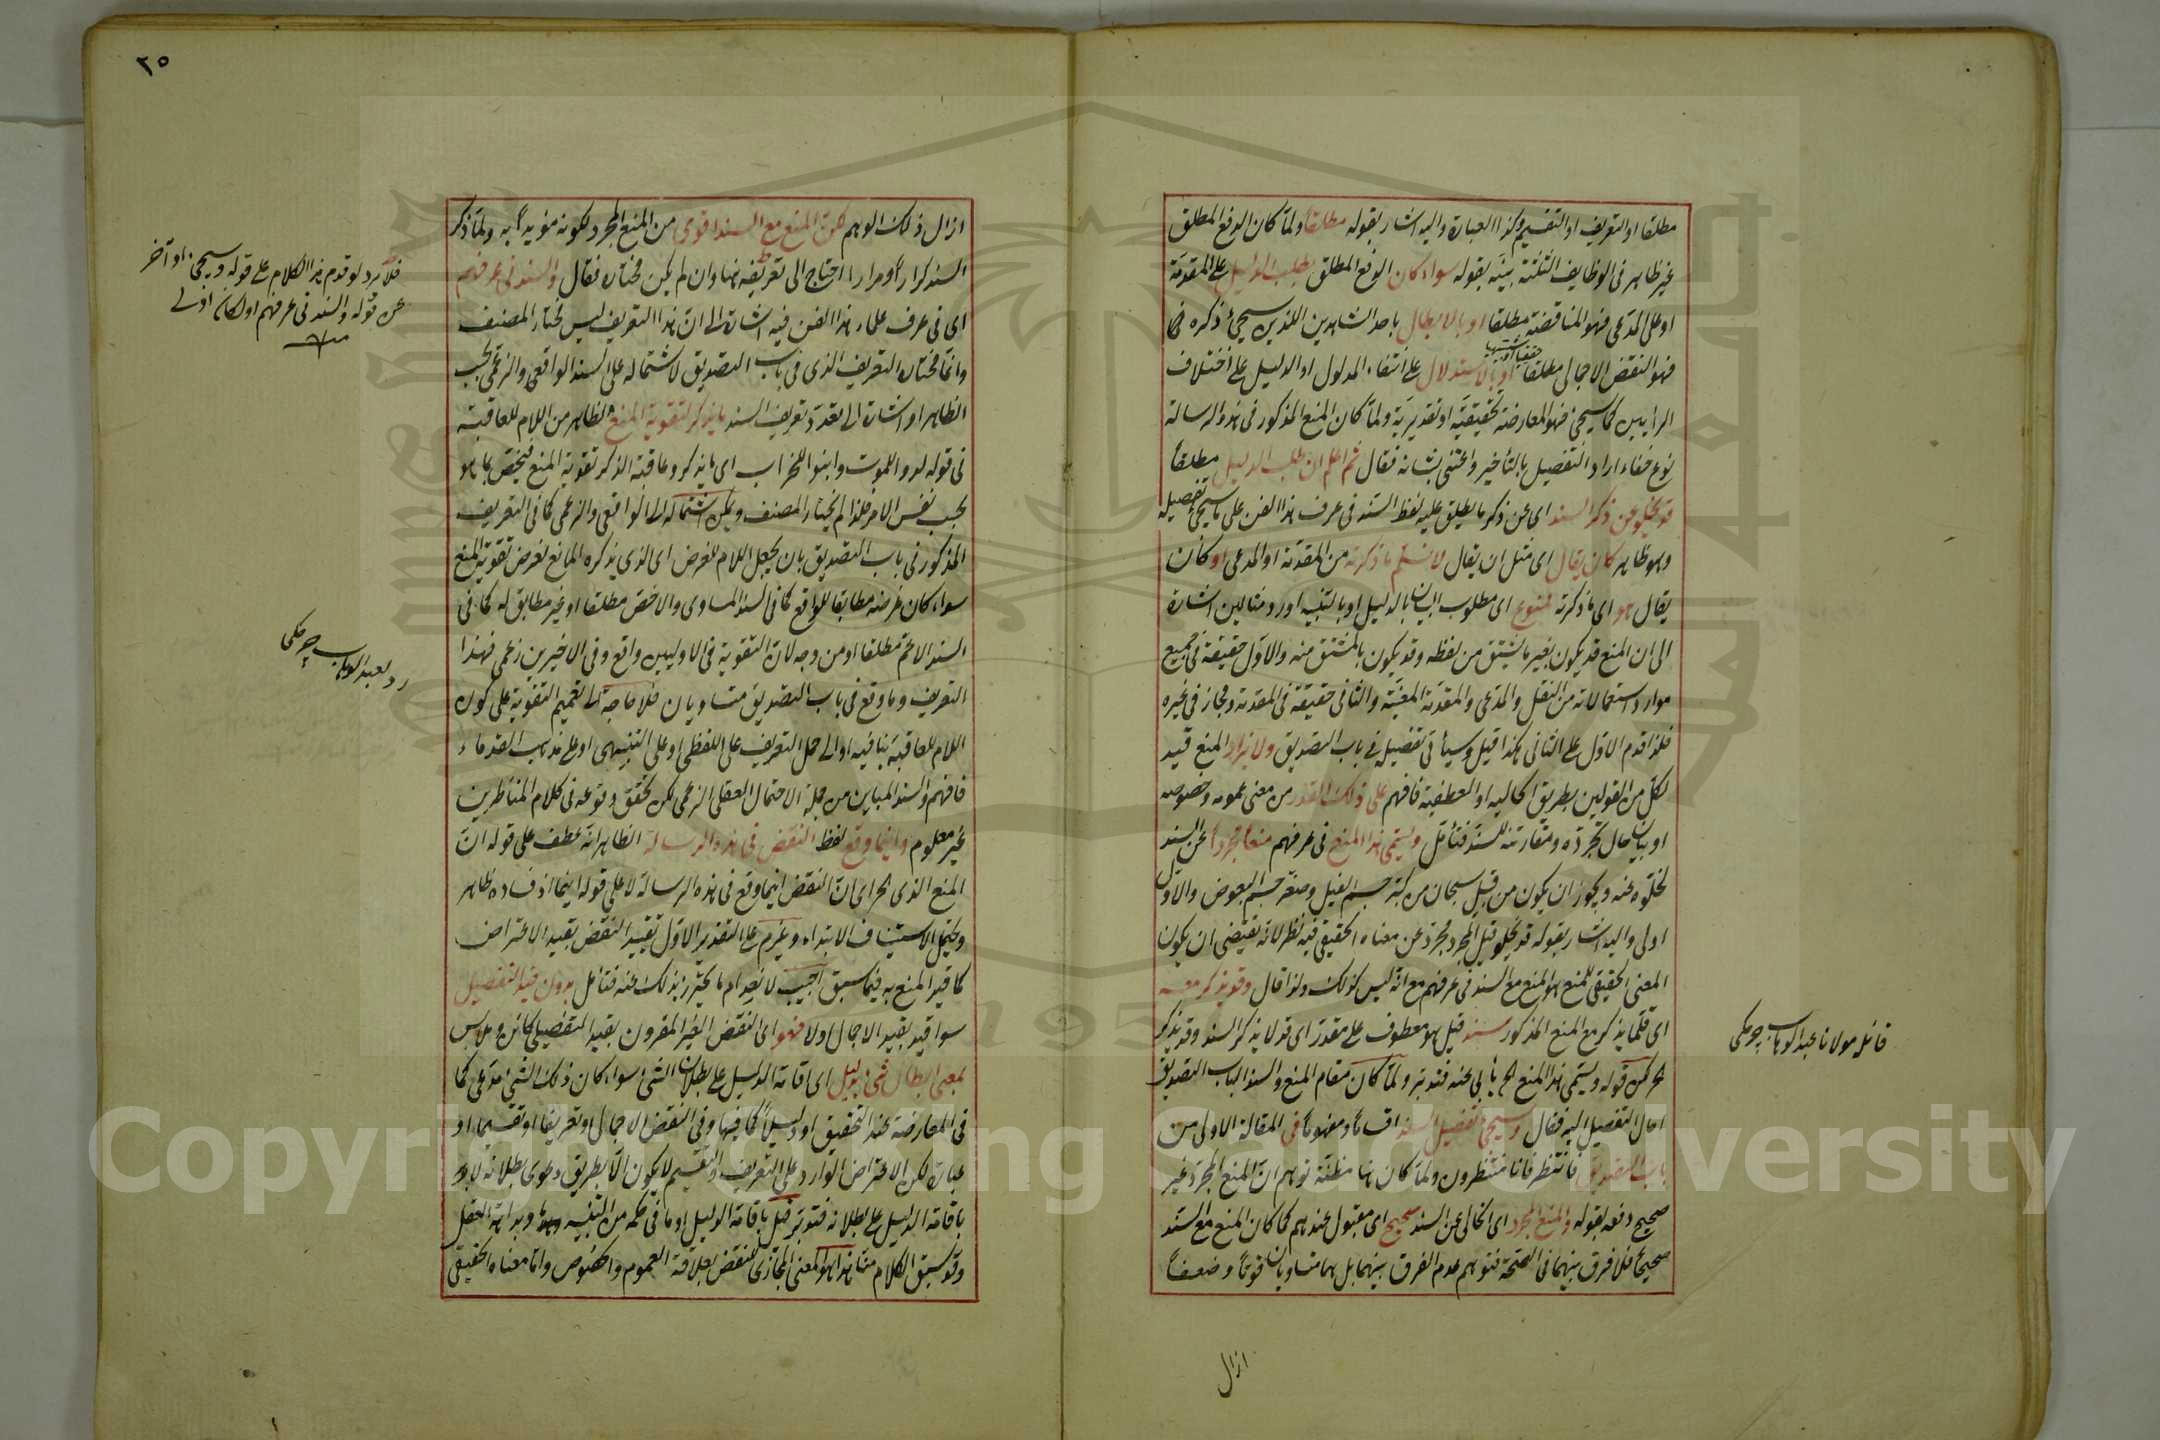 مطلقا او التعريف او التقسيم وكذا العبارة واليه اشار بقوله مطلقا ولما كان الدفع المطلق
غير ظاهر فى الوظايف الثلثة بينه بقوله سواء كان الدفع المطلق بطلب الدليل على المقدمة
او على المدعى فهو المناقضة مطلقا او بالابطال باحد الشاهدين اللذين سيجئ ذكره
فهو النقض الاجمالى مطلقا او بالاستدلال على انتفاء المدلول او الدليل على اختلاف
الرأيين كما سيجئ فهو المعارضة تحقيقية او تقديرية ولما كان المنع المذكور فى هذه الرسالة
نوع خفاء اراد التفصيل بالتأخير واعتنى بشانه فقال ثم اعلم ان طلب الدليل مطلقا
قد يخلو عن ذكر السند اى عن ذكر ما يطلق عليه لفظ السند فى عرف هذا الفن على ما سيجئ تفصيله
وهو ظاهر كأن يقال اى مثل ان يقال لا نسلم ما ذكرته من المقدمة او المدعى او كأن
يقال هو اى ما ذكرته ممنوع اى مطلوب البيان بالدليل او بالتنبيه اورد مثالين اشارة
الى ان المنع قد يكون بغير ما يشتق من لفظه وقد يكون بالمشتق منه والاول حقيقة فى جميع
موارد استعمالاته من النقل والمدعى والمقدمة المعينة والثانى حقيقة فى المقدمة ومجاز فى غيره
فلذا قدم الاول على الثانى هكذا قيل وسيأتى تفصيل فى باب التصديق ولا يزاد المنع قيد
لكل من القولين بطريق الحالية او العطفية فافهم على ذلك القدر من معنى عمومه وخصوصه
او بيان حال تجرده ومقارنته للسند فتأمل ويسمى هذا المنع فى عرفهم منعا مجردا عن السند
لخلوه عنه ويجوز ان يكون من قبيل سبحان من كبر جسم الفيل وصغر جسم البعوض والاول
اولى واليه اشار بقوله قد يخلو قيل المجرد مجرد عن معناه الحقيقى فيه نظر لانه يقتضى ان يكون
المعنى الحقيقى للمنع هو المنع مع السند فى عرفهم مع انه ليس كذلك ولذا قال وقد يذكر معه
اى قلما يذكر مع المنع المذكور سند قيل هو معطوف على مقدر اى قد لا يذكر السند وقد يذكر
لكن قوله ويسمى هذا المنع يأبى عنه فتدبر ولما كان مقام المنع والسند الباب التصديق
احال التفصيل اليه فقال وسيجئ تفصيل السند اقساما ومفهوما فى المقالة الاولى من
باب التصديق فانتظر فانا منتظرون ولما كان هنا مظنة توهم ان المنع المجرد غير
صحيح دفعه بقوله والمنع المجرد اى الخالى عن السند صحيح اى مقبول عندهم كما كان المنع مع السند
صحيحا فلا فرق بينهما فى الصحة فتوهم عدم الفرق بينهما بل هما متساويان قوة وضعفا
ازال
قائله مولانا عبد الوهاب چرمكى
٢٥
ازال ذلك الوهم لكن المنع مع السند اقوى من المنع المجرد لكونه مؤيدا به ولما ذكر
السند كرارا ومرارا احتاج الى تعريفه هنا وان لم يكن مختاره فقال والسند فى عرفهم
اى فى عرف علماء هذا الفن فيه اشارة الى ان هذا التعريف ليس مختار المصنف
وانما مختاره التعريف الذى فى باب التصديق لاشتماله على السند الواقعى والزعمى بحسب
الظاهر او اشارة الى تعدد تعريف السند ما يذكر لتقوية المنع الظاهر من اللام للعاقبة
فى قوله لدوا للموت وابنوا للخراب اى ما يذكر وعاقبة الذكر تقوية المنع فيختص بما هو
بحسب نفس الامر فلذا لم يختار المصنف ويمكن اشتماله الى الواقعى والزعمى كما فى التعريف
المذكور فى باب التصديق بان يجعل اللام للغرض اى الذى يذكره المانع لغرض تقوية المنع
سواء كان غرضه مطابقا للواقع كما فى السند المساوى والاخص مطلقا او غير مطابق له كما فى
السند الاعم مطلقا او من وجه لان التقوية فى الاوليين واقع وفى الاخيرين زعمى فهذا
التعريف وما وقع فى باب التصديق متساويان فلا حاجة الى تعميم التقوية على كون
اللام للعاقبة بنا فيه او الى حمل التعريف على اللفظى او على التنبيهى او على مذهب القدماء
فافهم والسند المباين من جملة الاحتمال العقلى الزعمى لكن تحقق وقوعه فى كلام المناظرين
غير معلوم وانما وقع لفظ النقض فى هذه الرسالة الظاهر انه عطف على قوله ان
المنع الذى الخ اى ان النقض انما وقع فى هذه الرسالة لا على قوله انما اذ فساده ظاهر
ويحتمل الاستيناف الابتداء ويلزم على التقدير الاول تقييد النقض بقيد الاعتراض
كما قيد المنع به فيما سبق اجيب لانعدام ما يحترز بذلك عنه فتأمل بدون قيد التفصيل
سوا قيد بقيد الاجمال اولا فهو اى النقض الغير المقرون بقيد التفصيلى كائن وملابس
بمعنى ابطال شئ بدليل اى اقامة الدليل على بطلان الشئ سواء كان ذلك الشئ مدعى كما
فى المعارضة عند التحقيق او دليلا كما فيها وفى النقض الاجمالى او تعريفا او تقسيما او
عبارة لكن الاعتراض الوارد على التعريف والتقسيم لا يكون الا بطريق دعوى بطلانه لا
باقامة الدليل على بطلانه فتدبر قيل باقامة الدليل او ما فى حكمه من التنبيه وبداهة العقل
وقد سبق الكلام منا هذا هو المعنى المجازى للنقض بعلاقة العموم والخصوص واما معناه الحقيقى
فلا يرد لو قدم هذا الكلام على قوله وسيجئ او آخر
عن قوله والسند فى عرفهم او لكان اولى
منه
رد لعبد الوهاب چرمكى
Copyright © King Saud University
1957